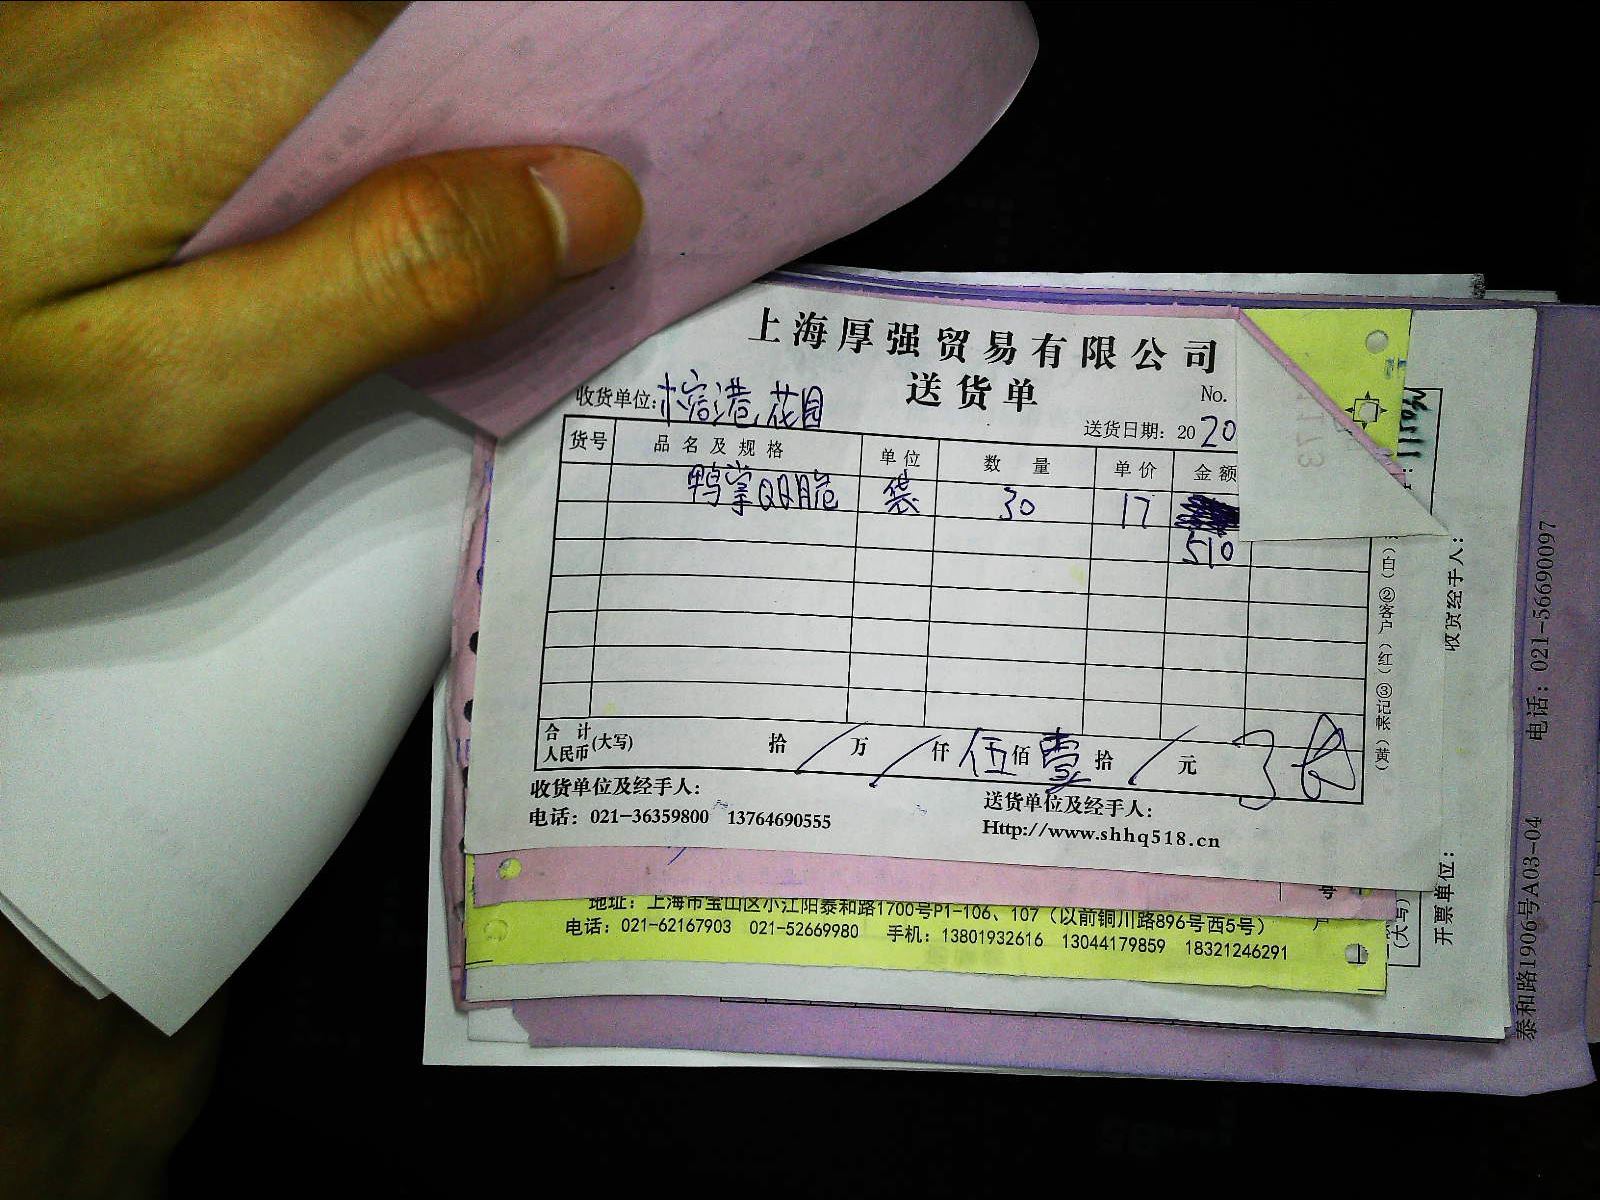 上海厚强贸易有限公司
送货单
No.
收货单位:榕港花园
送货日期: 2020
货号 品名及规格 单位 数量 单价 金额
鸭掌QQ脆 袋 30 17
510
合计人民币(大写) 拾 / 万 / 仟 伍 佰 壹 拾 / 元
收货单位及经手人:
送货单位及经手人:
电话: 021-36359800 13764690555
Http://www.shhq518.cn
(白)②客户(红)③记帐(黄)
地址: 上海市宝山区小江阳泰和路1700号P1-106、107(以前铜川路896号西5号)
电话: 021-62167903 021-52669980 手机: 13801932616 13044179859 18321246291
号
(大写)
收货经手人:
开票单位:
泰和路1906号A03-04 电话: 021-56690097